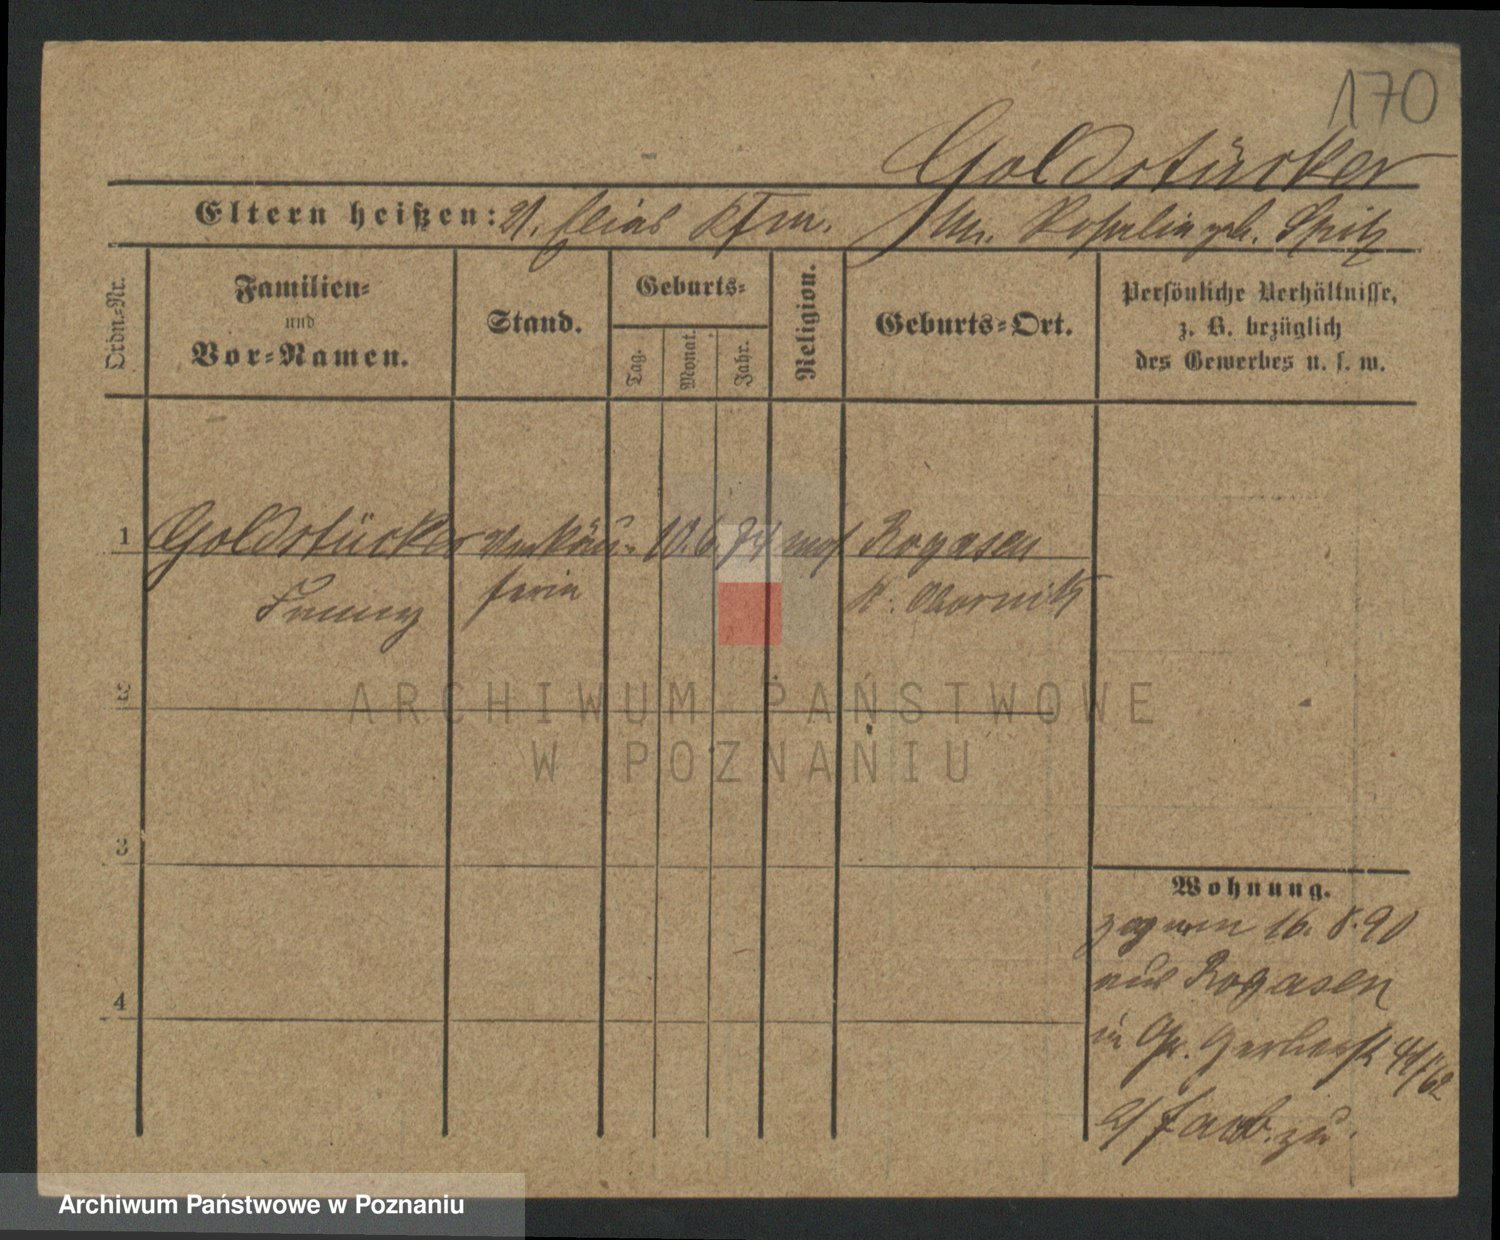 170
Goldstücker
Eltern heißen: V. Elias Kfm. Mr. Rosalie geb. Spitz
Ordn.-Nr.
Familien-
und
Vor-Namen.
Stand.
Geburts-
Tag.
Monat.
Jahr.
Religion.
Geburts-Ort.
Persönliche Verhältnisse,
z. B. bezüglich
des Gewerbes u. s. w.
1 Goldstücker Verkäu- 10. 6. 74 mos Rogasen
Fanny ferin K. Obornik
2
3
4
Wohnung.
zog am 16. 8. 90
aus Rogasen
in Gr. Gerberst
ARCHIWUM PAŃSTWOWE
W POZNANIU
Archiwum Państwowe w Poznaniu